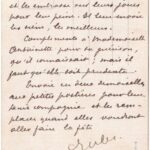 et l'embrasse sur leurs joues
pour leur père. Et leur envoie
les siens, les meilleurs.
Compliments à Mademoiselle
Antoinette pour sa guérison,
qu'il connaissait; mais il
faut qu'elle soit prudente.
Envoie ces deux
aux petites postières pour leur
tenir compagnie et les rem-
placer quand elles voudront
aller faire la fête